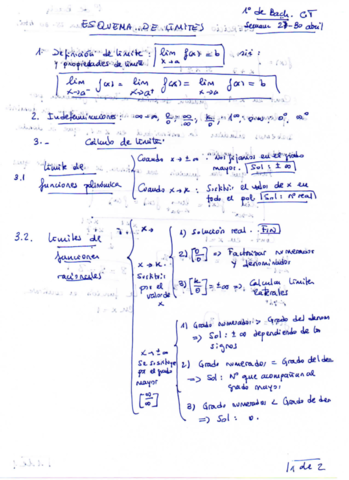 1º de Bach. CT
ESQUEMA DE LÍMITES
Semana 27-30 abril
1- Definición de límite: lim f(x) = b sii:
x→a
y propiedades de límite
lim f(x) = lim f(x) = lim f(x) = b
x→a⁻ x→a⁺ x→a
2. Indeterminaciones: ∞-∞, 0/0, ∞/∞, k/0, 1^∞, 0·∞, 0⁰, ∞⁰
3.- Cálculo de límite:
3.1 Límite de funciones polinómica
Cuando x→±∞: Nos fijamos en el grado mayor. Sol: ±∞
Cuando x→k: Sustituir el valor de x en todo el pol. Sol: nº real
3.2. Límites de funciones racionales
x→k
Sustituir por el valor de x
1) Solución real. FIN
2) [0/0] ⇒ Factorizar numerador y denominador
3) [k/0] = ±∞ ⇒ Calcular límites laterales
x→±∞
Se sustituye por el grado mayor
[∞/∞]
1) Grado numerador > Grado del denom
⇒ Sol: ±∞ dependiendo de los signos
2) Grado numerador = Grado del den
⇒ Sol: Nº que acompaña al grado mayor
3) Grado numerador < Grado de den
⇒ Sol: 0.
1 de 2